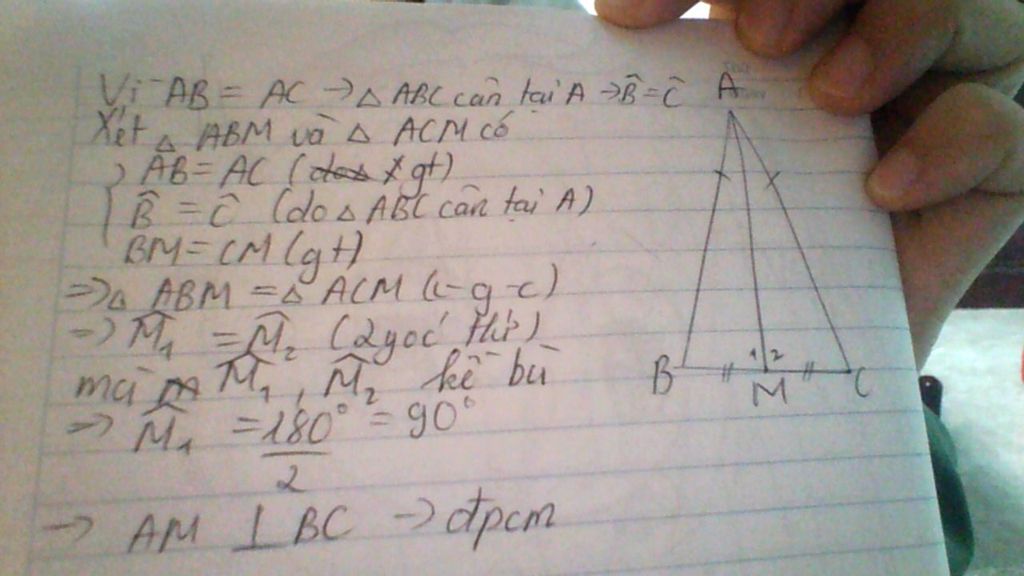 Vì AB = AC → △ ABC cân tại A → B̂ = Ĉ
Xét △ ABM và △ ACM có
AB = AC (gt)
B̂ = Ĉ (do △ ABC cân tại A)
BM = CM (gt)
=> △ ABM = △ ACM (c-g-c)
=> M̂₁ = M̂₂ (2 góc
mà M̂₁, M̂₂ kề bù
=> M̂₁ = 180° = 90°
2
→ AM ⊥ BC → đpcm
A
B
1 2
M
C